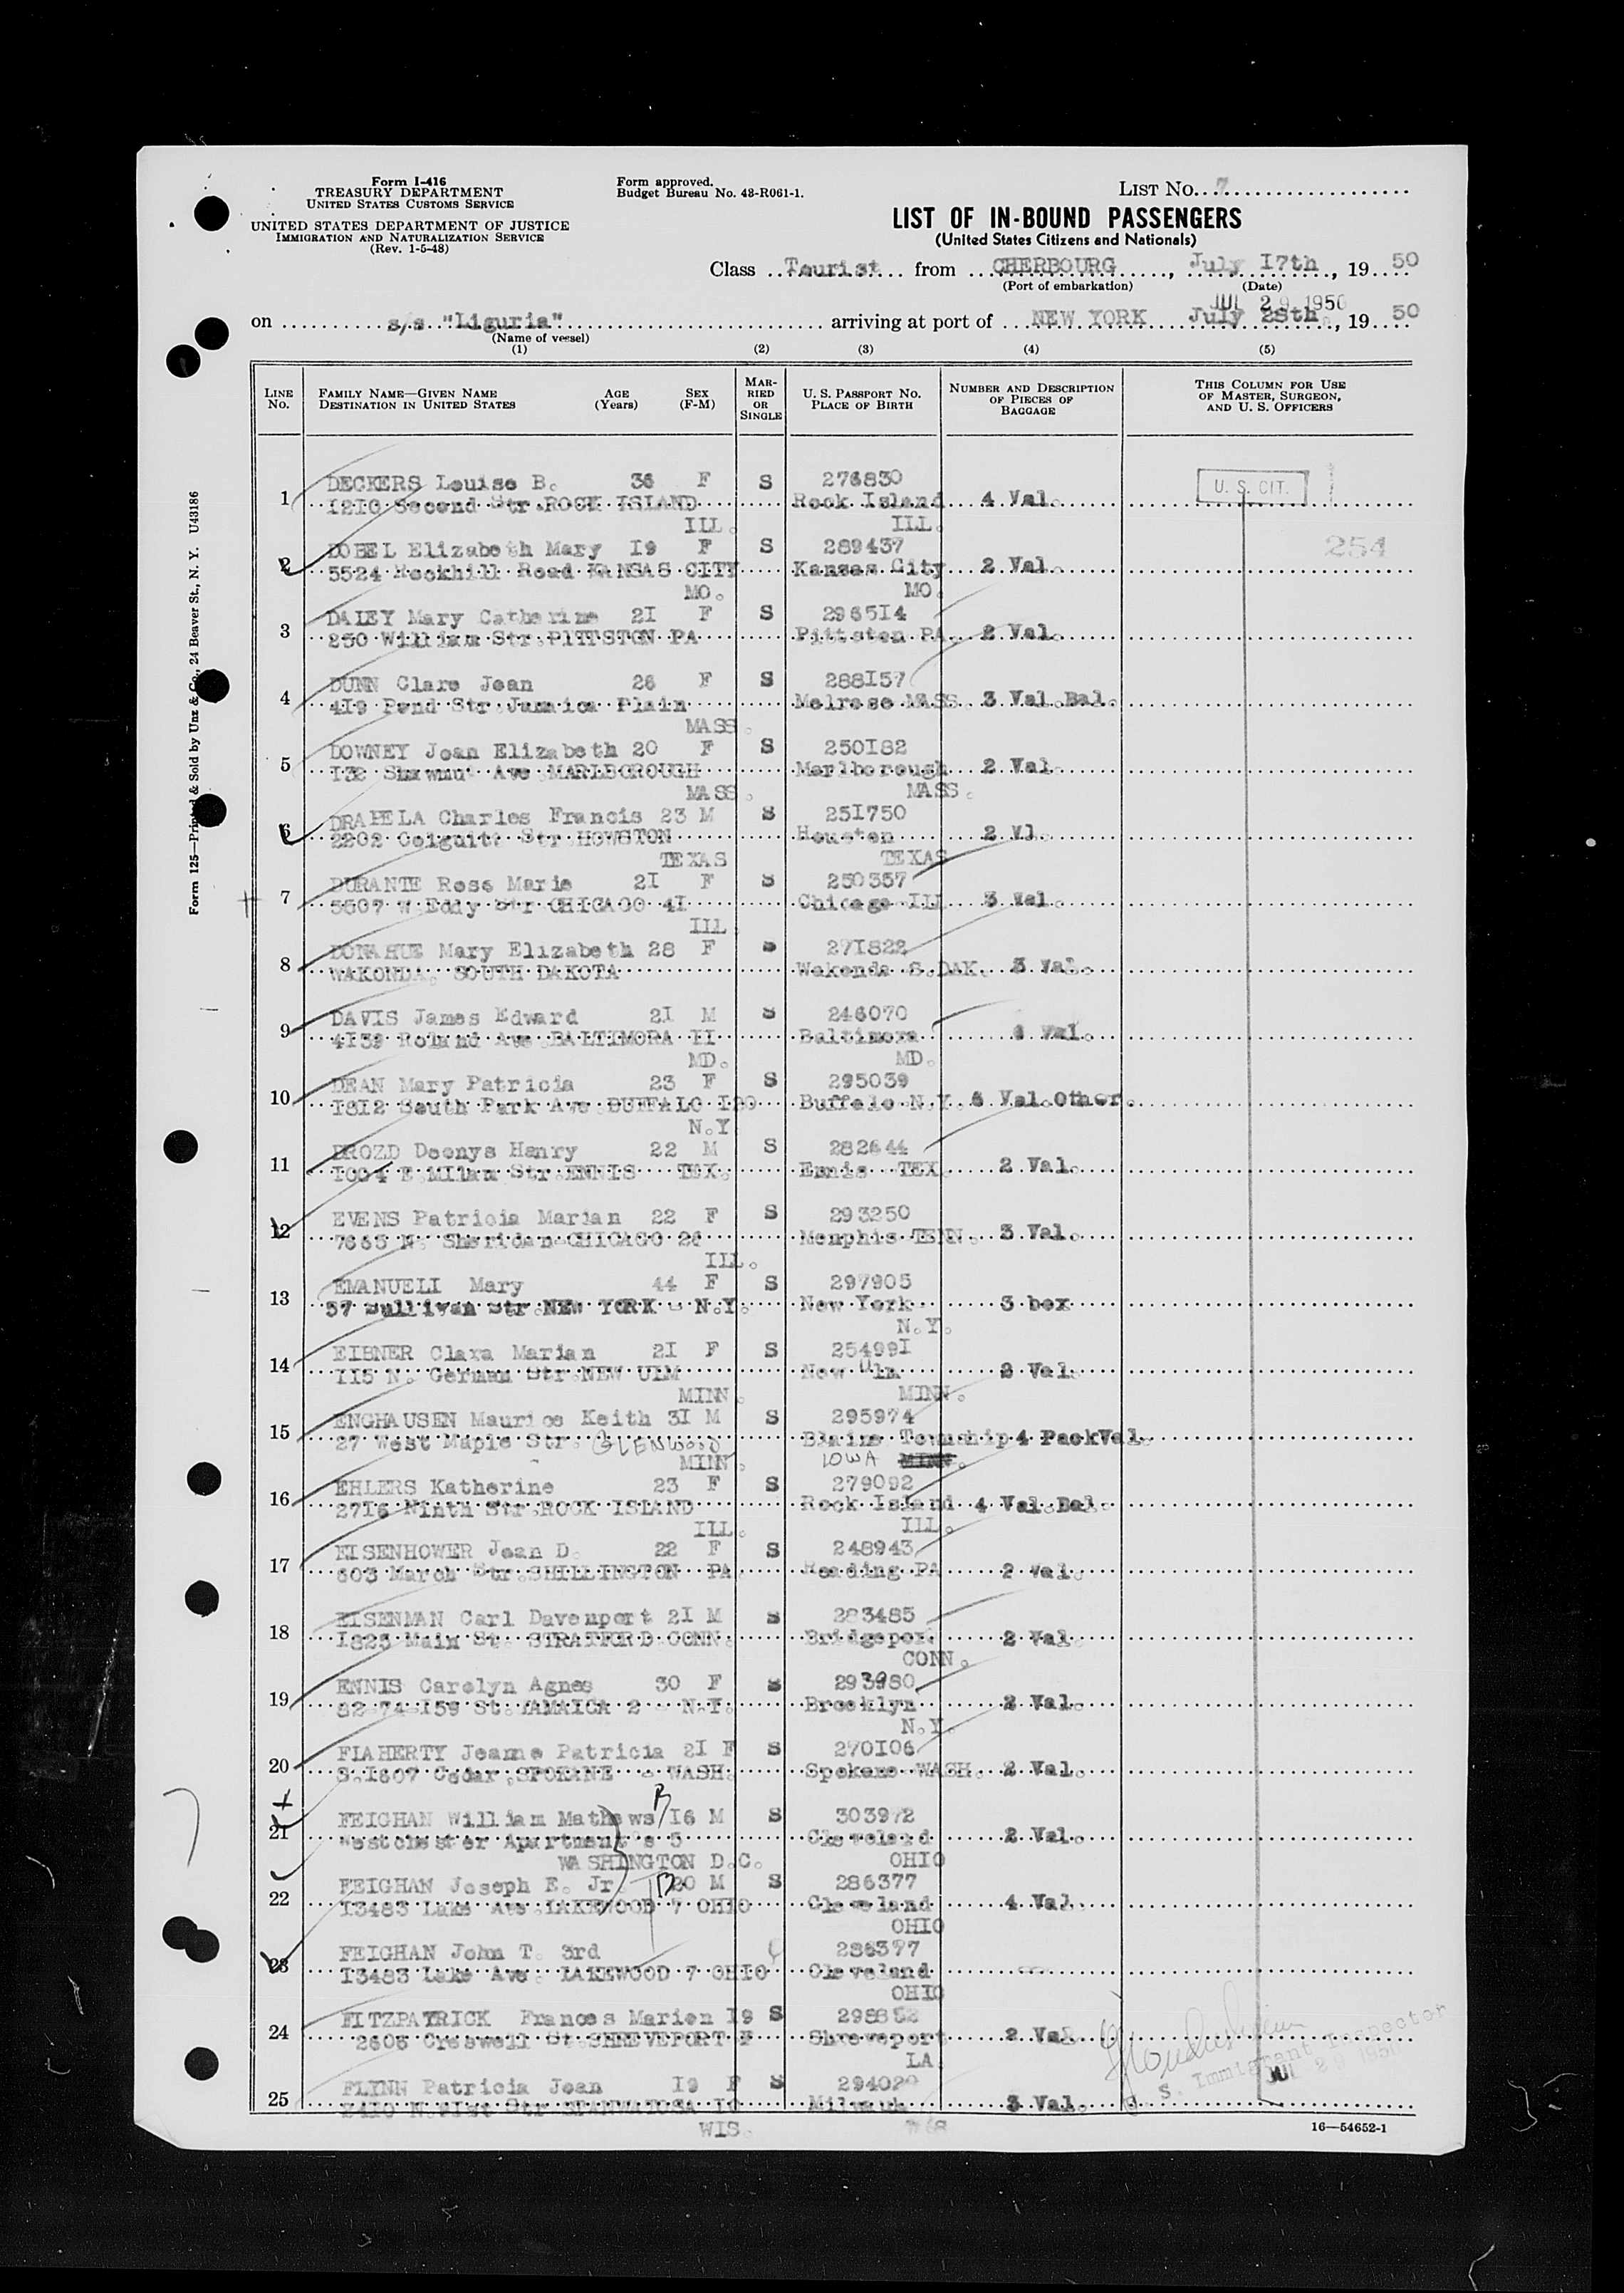 Form I-416
TREASURY DEPARTMENT
UNITED STATES CUSTOMS SERVICE
UNITED STATES DEPARTMENT OF JUSTICE
IMMIGRATION AND NATURALIZATION SERVICE
(Rev. 1-5-48)
Form approved.
Budget Bureau No. 43-R061-1.
LIST No. 7
LIST OF IN-BOUND PASSENGERS
(United States Citizens and Nationals)
Class Tourist from CHERBOURG, July I7th, 19 50
(Port of embarkation) (Date)
JUL 29 1950
on s/s "Liguria" arriving at port of NEW YORK July 28th, 19 50
(Name of vessel)
(1) (2) (3) (4) (5)
LINE No. FAMILY NAME—GIVEN NAME DESTINATION IN UNITED STATES AGE (Years) SEX (F-M) MARRIED OR SINGLE U. S. PASSPORT No. PLACE OF BIRTH NUMBER AND DESCRIPTION OF PIECES OF BAGGAGE THIS COLUMN FOR USE OF MASTER, SURGEON, AND U. S. OFFICERS
DECKERS Louise B. 36 F S 276830 U. S. CIT.
1 I2I0 Second Str.ROCK ISLAND Rock Island 4 Val.
ILL. ILL.
DOBEL Elizabeth Mary I9 F S 289437 254
2 5524 Rockhill Road KANSAS CITY Kansas City 2 Val.
MO. MO.
DALEY Mary Catherine 2I F S 2965I4
3 250 William Str.PITTSTON PA Pittston PA. 2 Val.
DUNN Clare Jean 26 F S 288I57
4 4I9 Pond Str.Jamaica Plain Melrose MASS. 3 Val.Bal.
MASS.
DOWNEY Joan Elizabeth 20 F S 250I82
5 I32 Shawmut Ave MARLBOROUGH Marlborough 2 Val.
MASS. MASS.
DRAPELA Charles Francis 23 M S 25I750
6 2202 Colguitt Str.HOWSTON Houston 2 Vl.
TEXAS TEXAS
DURANTE Rose Marie 2I F S 250357
7 5507 W.Eddy Str CHICAGO 4I Chicago ILL 3 Val.
ILL.
DONAHUE Mary Elizabeth 28 F S 27I822
8 WAKONDA. SOUTH DAKOTA Wakonda S.DAK. 3 Val.
DAVIS James Edward 2I M S 246070
9 4I39 Roland Ave.BALTIMORA II Baltimora Val.
MD. MD.
DEAN Mary Patricia 23 F S 295039
10 I8I2 South Park Ave.BUFFALO I20 Buffalo N.Y. 5 Val.Other.
N.Y.
DROZD Deonys Henry 22 M S 282644
11 I004 E.Milam Str.ENNIS TEX. Ennis TEX. 2 Val.
EVENS Patricia Marian 22 F S 293250
12 7665 N. Sheridan CHICAGO 26 Memphis TENN. 3 Val.
ILL.
EMANUELI Mary 44 F S 297905
13 57 Sullivan str.NEW YORK - N.Y. New York 3 box
N.Y.
EIBNER Clara Marian 2I F S 25499I
14 II5 N. German Str.NEW ULM New Ulm 2 Val.
MINN. MINN.
ENGHAUSEN Maurice Keith 3I M S 295974
15 27 West Maple Str. GLENWOOD Blaine Township 4 PackVal.
MINN. IOWA MINN.
EHLERS Katherine 23 F S 279092
16 27I6 Ninth Str.ROCK ISLAND Rock Island 4 Val.Bal.
ILL. ILL.
EISENHOWER Jean D. 22 F S 248943
17 603 March Str.SHILLINGTON PA Reading PA 2 Val.
EISENMAN Carl Davenport 2I M S 283485
18 I823 Main St. STRATFORD CONN. Bridgeport 2 Val.
CONN.
ENNIS Carolyn Agnes 30 F S 293980
19 82-74-I59 St.JAMAICA 2 N.Y. Brooklyn 2 Val.
N.Y.
FLAHERTY Jeanne Patricia 2I F S 270I06
20 S.I607 Cedar.SPOKANE - WASH. Spokane WASH. 2 Val.
FEIGHAN William Mathews I6 M S 303972
21 Westchester Apartment's 5 Cleveland 2 Val.
WASHINGTON D.C. OHIO
FEIGHAN Joseph E. Jr. 20 M S 286377
22 I3483 Lake Ave.LAKEWOOD 7 OHIO Cleveland 4 Val.
OHIO
FEIGHAN John T. 3rd 286377
23 I3483 Lake Ave. LAKEWOOD 7 OHIO Cleveland
OHIO
FITZPATRICK Frances Marion I9 S 298852
24 2605 Creswell St.SHREVEPORT F Shreveport 2 Val.
LA.
FLYNN Patricia Jean I9 F S 294020
25 Str 3 Val.
WIS.
U. S. Immigrant Inspector
JUL 29 1950
16—54652-1
Form 125—Printed & Sold by Unz & Co., 24 Beaver St., N. Y. U43186